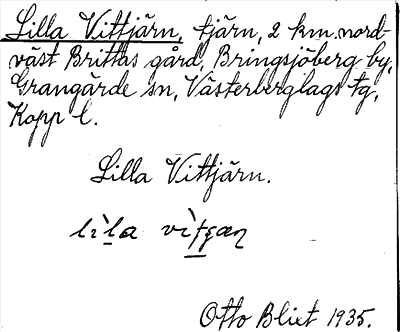 Lilla Vittjärn, tjärn, 2 km. nord-
väst Brittas gård, Bringsjöberg by,
Grangärde sn, Västerberglags tg,
Kopp l.
Lilla Vittjärn.
Otto Blixt 1935.